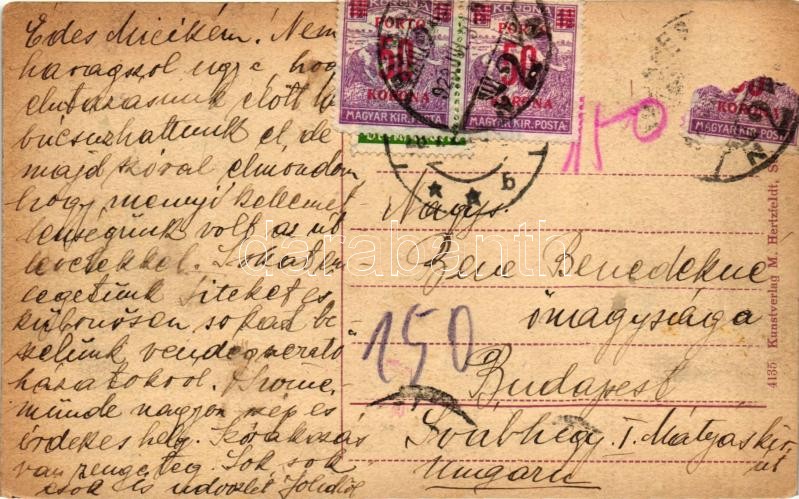 Édes Micikém! Nem
haragszol ugye hogy
elutazásunk előtt nem
búcsúzhattunk el, de
majd szóval elmondom
hogy mennyi kellemet-
lenségünk volt az út
levelekkel. Sokat em
legetünk Titeket és
különösen sokat be-
szélünk vendégszerető
házatokról.
münde nagyon szép és
érdekes hely. Szórakozás
van rengeteg. Sok sok
csók és üdvözlet
KORONA KORONA
PORTO PORTO
50 50
KORONA KORONA
MAGYAR KIR. POSTA MAGYAR KIR. POSTA
KORONA
MAGYAR KIR. POSTA
150
b
Nagys.
Bene Benedekné
őnagysága
150
Budapest
Svábhegy. I. Mátyás kir.
út
Ungarn
4135 Kunstverlag M. Hertzfeldt, S
darabanth